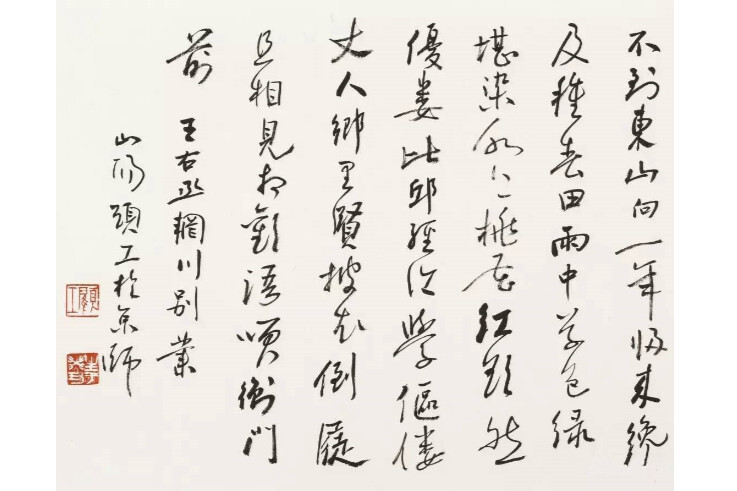 不到東山向一年歸來纔
及種春田雨中草色綠
堪染水上桃花紅欲然
優婁比邱經論學傴僂
丈人鄉里賢披衣倒屣
且相見相歡語笑衡門
前 王右丞輞川別業
山陽顧工於京師
顧工